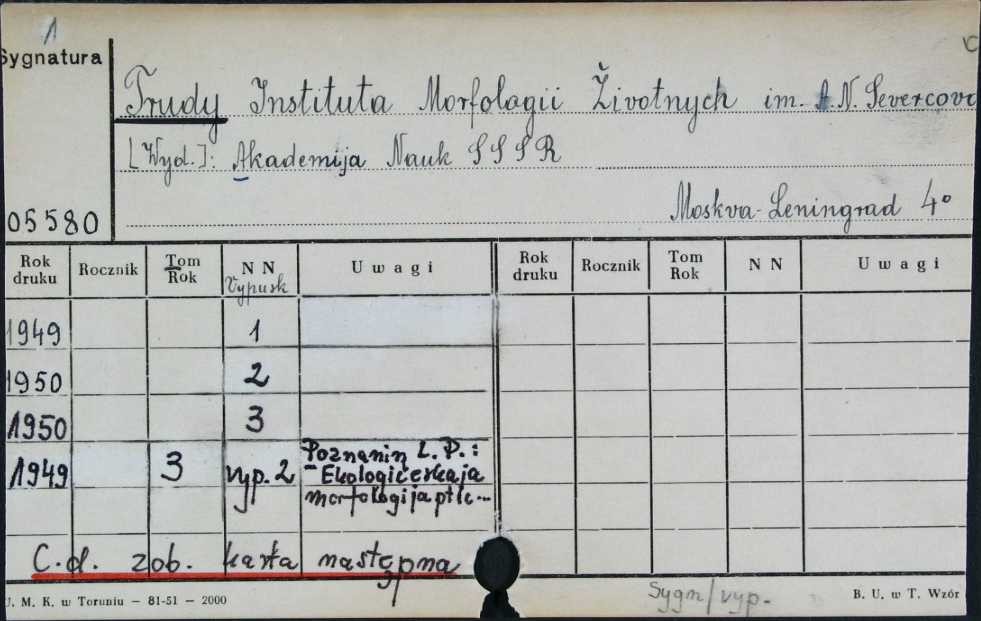 1
Sygnatura
Trudy Instituta Morfologii Životnych im. A.N. Severcova
[Wyd.]: Akademija Nauk SSSR
05580
Moskva-Leningrad 4°
Rok druku Rocznik Tom Rok N N Vypusk Uwagi Rok druku Rocznik Tom Rok N N Uwagi
1949 1
1950 2
1950 3
1949 3 vyp. 2 Poznanin L.P.:
Ekologičeskaja
morfologija ptic...
C.d. zob. karta następna
U. M. K. w Toruniu — 81-51 — 2000 Sygn/vyp. B. U. w T. Wzór